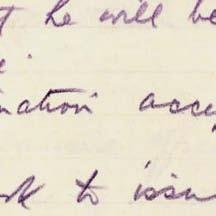 t he will be
nation acce
rk to issu